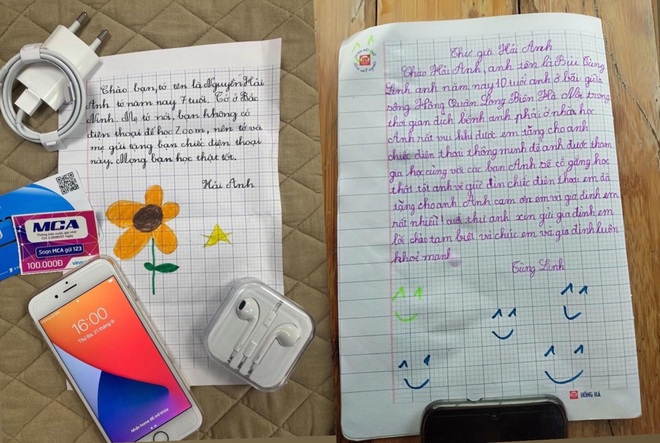 Chào bạn, tớ tên là Nguyễn Hải
Anh tớ năm nay 7 tuổi. Tớ ở Bắc
Ninh. Mẹ tớ nói, bạn không có
điện thoại để học Zoom, nên tớ và
mẹ gửi tặng bạn chức điện thoại
này. Mong bạn học thật tốt.
Hải Anh
MCA
Soạn MCA gửi 123
100.000Đ
16:00
Thứ Ba, 21 tháng 9
Nhấn home để mở khóa
Thư gửi Hải Anh
Chào Hải Anh, anh tên là Bùi Tùng
Linh anh năm nay 10 tuổi anh ở bãi giữa
sông Hồng Quận Long Biên Hà Nội trong
thơ gian dịch bệnh anh phải ở nhà học
Anh rất vui khi được em tặng cho anh
chức điện thoai thông minh để anh được tham
gia học cùng với các bạn Anh sẽ cố gắng học
thật tốt anh vẽ giữ dìn chức điện thoai em đã
tặng cho anh. Anh cảm ơn em và gia đình em
rất nhiều! thư anh xin gửi gia đình em
lời chào tạm biệt và chúc em và gia đình luôn
khoẻ mạnh
Tùng Linh
HỒNG HÀ